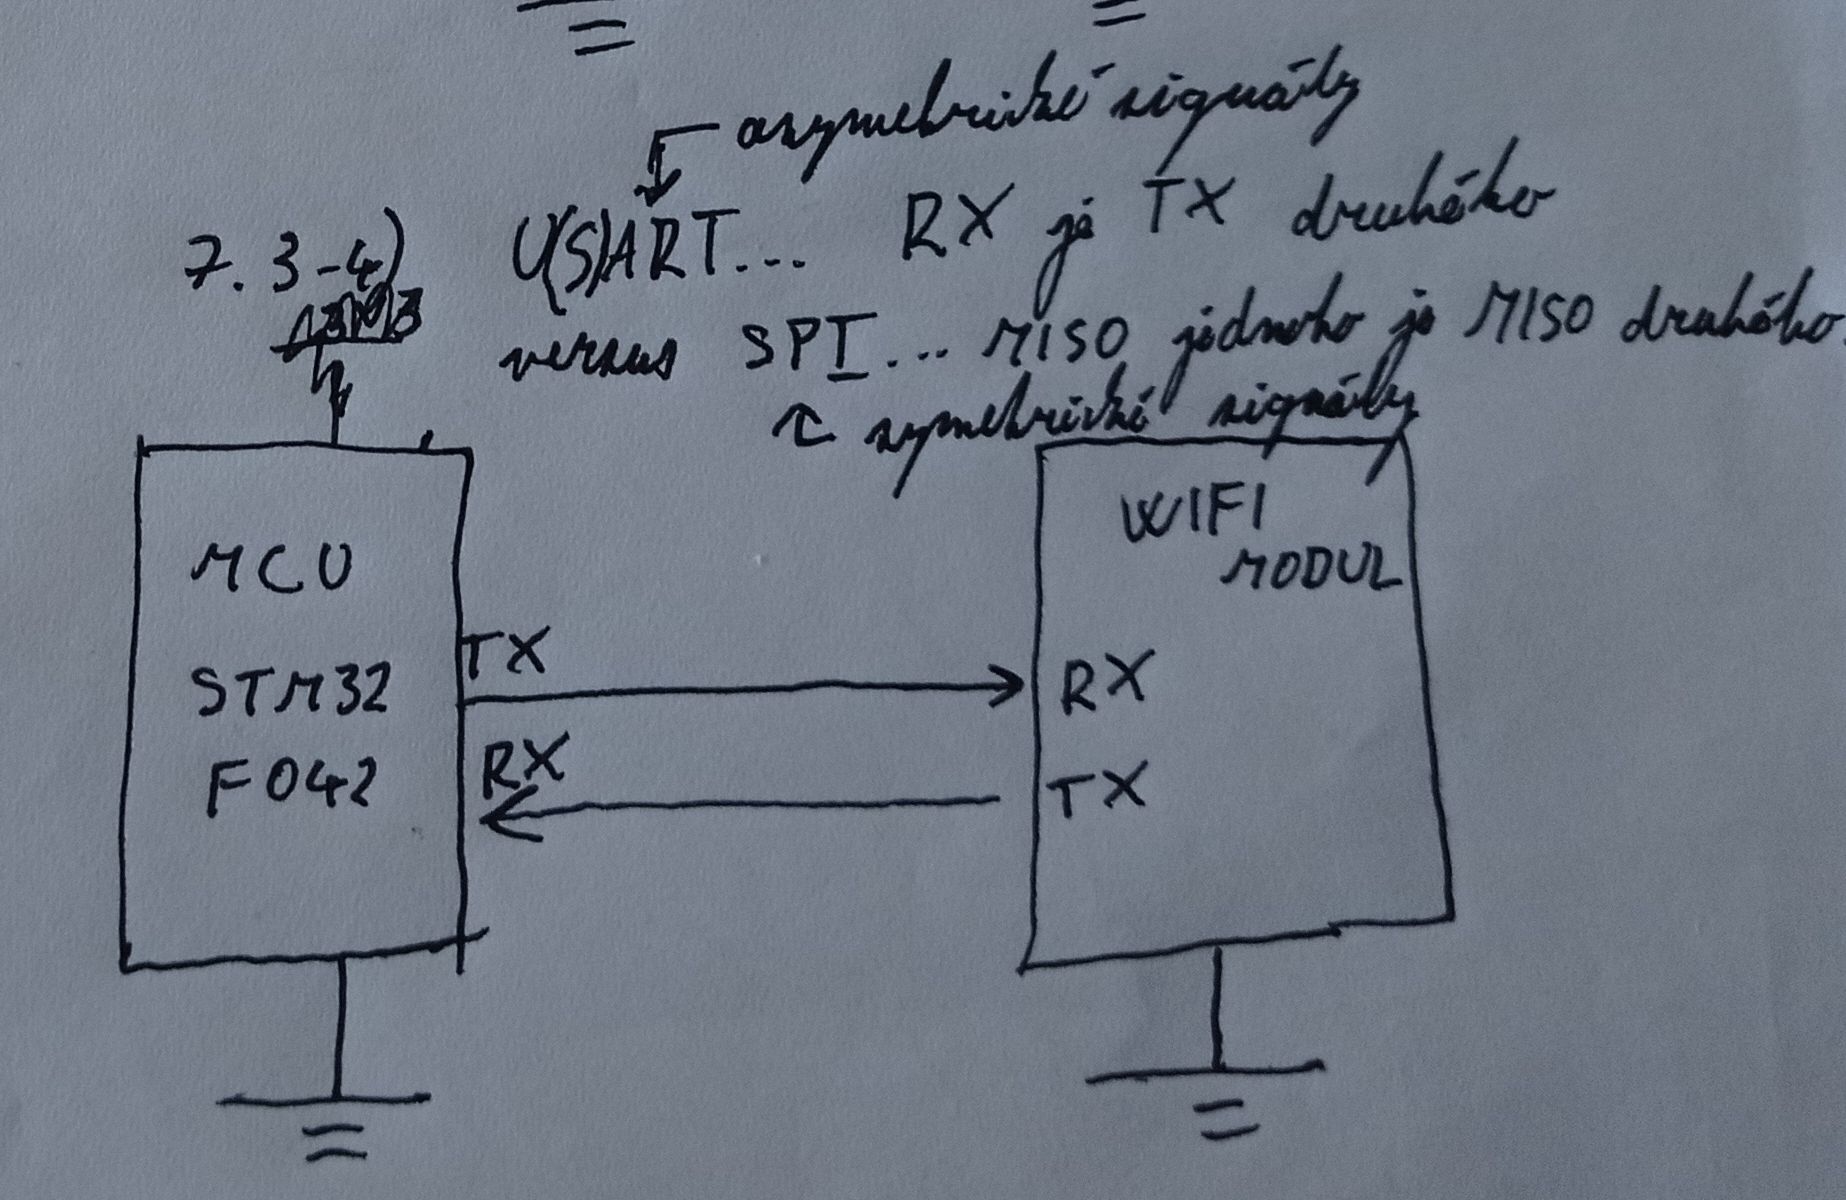 asymetrické signály
7.3-4) U(S)ART... RX je TX druhého
versus SPI... MISO jednoho je MISO druhého.
symetrické signály
MCU
STM32
F042
TX
RX
WIFI
MODUL
RX
TX